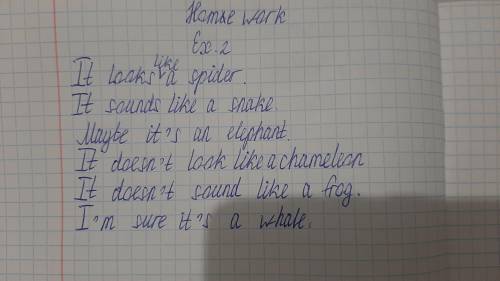 Homse work
Ex. 2
It looks like a spider.
It sounds like a snake.
Maybe it's an elephant.
It doesn't look like a chameleon
It doesn't sound like a frog.
I'm sure it's a whale.